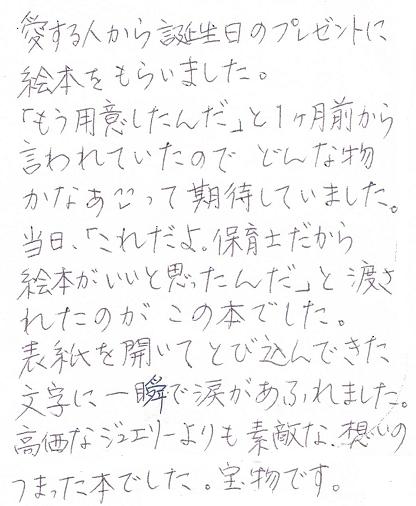 愛する人から誕生日のプレゼントに
絵本をもらいました。
「もう用意したんだ」と1ヶ月前から
言われていたので どんな物
かなあごって期待していました。
当日、「これだよ。保育士だから
絵本がいいと思ったんだ」と渡さ
れたのが この本でした。
表紙を開いて とび込んできた
文字に一瞬で涙があふれました。
高価なジュエリーよりも素敵な、想いの
つまった本でした。宝物です。